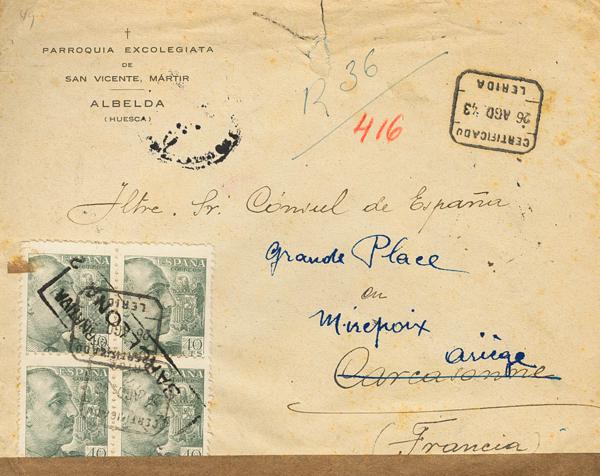 PARROQUIA EXCOLEGIATA
DE
SAN VICENTE, MÁRTIR
ALBELDA
(HUESCA)
R 36
416
CERTIFICADO
26 AGO 43
LERIDA
Iltre. Sr. Cónsul de España
Grande Place
en
Mirepoix
Ariège
Carcasonne
(Francia)
ESPAÑA
CORREOS
40
CTS
ESPAÑA
CORREOS
40
CTS
LERIDA
CERTIFICADO
40
40